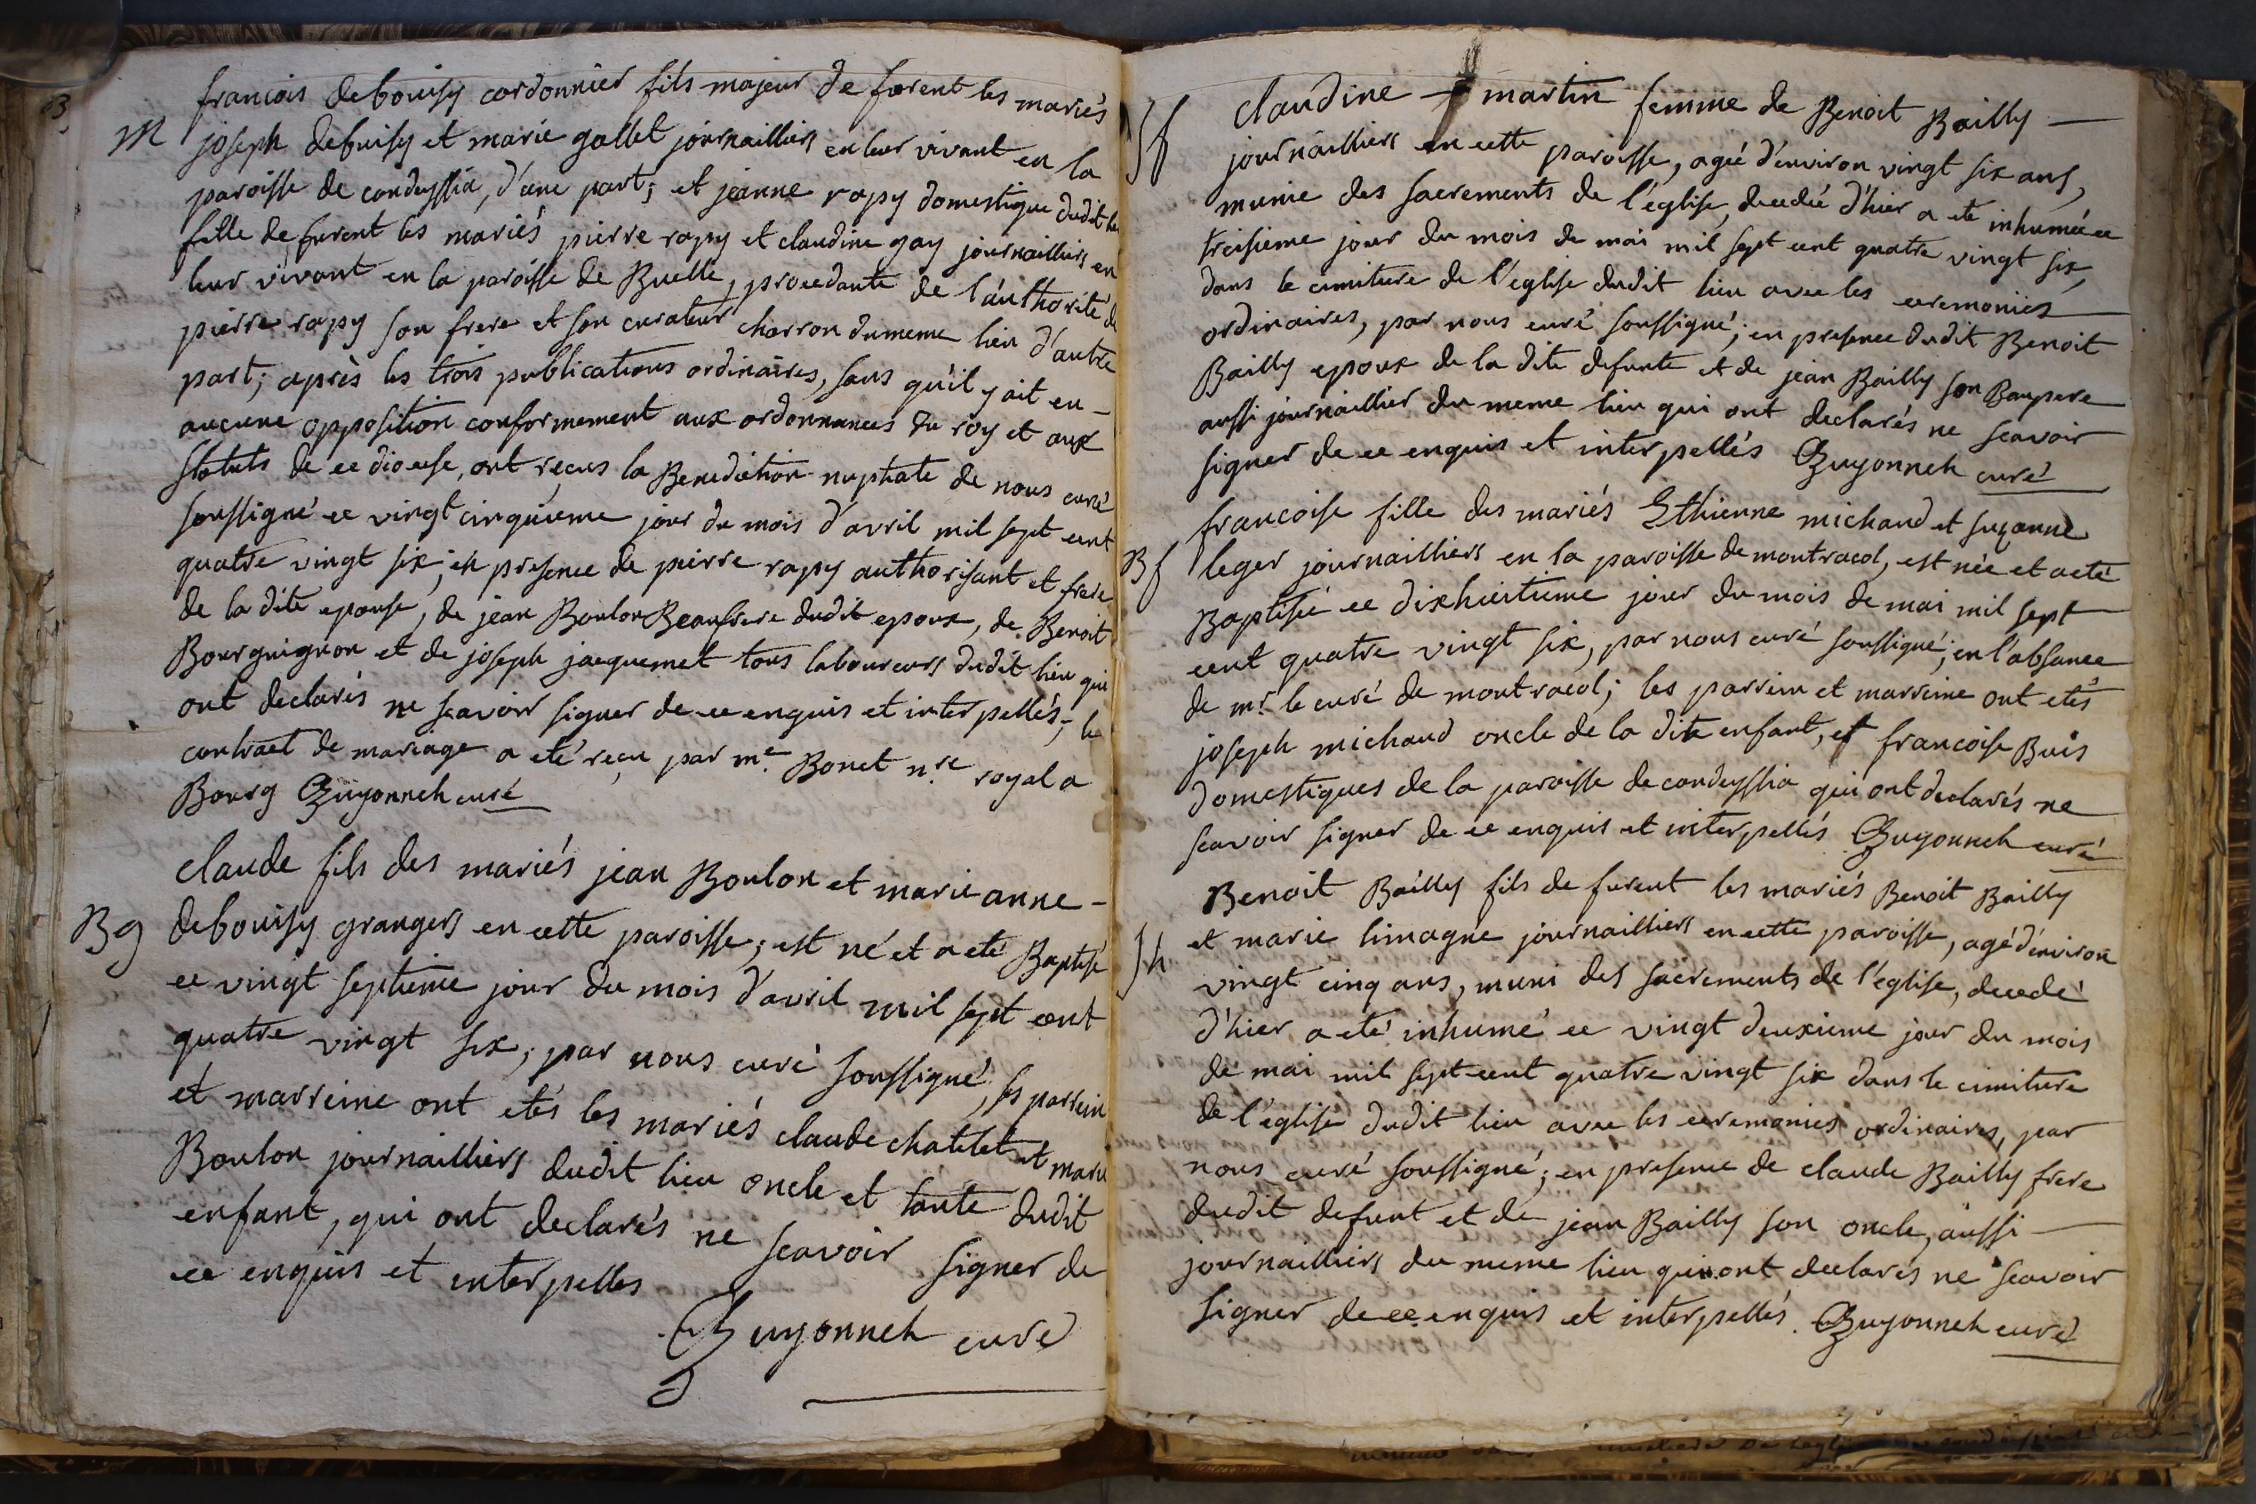 francois debouisy cordonnier fils majeur de furent les mariés
M
joseph debuisy et marie gallet journailliers en leur vivant en la
paroisse de condeyssia, d'une part; et jeanne rapy domestique dudit lieu
fille de furent les mariés pierre rapy et claudine gay journailliers en
leur vivant en la paroisse de Buelle, procedante de l'authorité de
pierre rapy son frere et son curateur charron du meme lieu d'autre
part; après les trois publications ordinaires, sans qu'il y ait eu -
aucune opposition conformement aux ordonnances du roy et aux
statuts de ce diocese, ont reçus la Benediction nuptiale de nous curé
soussigné ce vingt cinquième jour du mois d'avril mil sept cent
quatre vingt six; en presence de pierre rapy authorisant et frere
de la dite epouse, de jean Boulon Beaufrere dudit epoux, de Benoit
Bourguignon et de joseph jacquemet tous laboureurs dudit lieu qui
ont declarés ne scavoir signer de ce enquis et interpellés; le
contract de mariage a eté reçu par me. Bonet n.re royal a
Bourg Guyonneh curé
claude fils des mariés jean Boulon et marie anne -
Bg
debouisy grangers en cette paroisse; est né et a eté Baptisé
ce vingt septieme jour du mois d'avril mil sept cent
quatre vingt six; par nous curé soussigné, les parrein
et marreine ont etés les mariés claude chatelet et marie
Boulon journailliers dudit lieu oncle et tante dudit
enfant, qui ont declarés ne scavoir signer de
ce enquis et interpelles
Guyonneh curé
claudine martin femme de Benoit Bailly
Sf
journailliers en cette paroisse, agée d'environ vingt six ans,
munie des sacrements de l'église, decedée d'hier a ete inhumée ce
treisieme jour du mois de mai mil sept cent quatre vingt six,
dans le cimiture de l'eglise dudit lieu avec les ceremonies
ordinaires, par nous curé soussigné; en presence dudit Benoit
Bailly epoux de la dite defunte et de jean Bailly son Baupere
aussi journaillier du meme lieu qui ont declarés ne scavoir
signer de ce enquis et interpellés Guyonneh curé
francoise fille des mariés Ethienne michaud et suzanne
Bf
leger journailliers en la paroisse de montracol, est née et a eté
Baptisée ce dixhuitieme jour du mois de mai mil sept
cent quatre vingt six, par nous curé soussigné; en l'absance
de mr. le curé de montracol; les parrein et marreine ont etés
joseph michaud oncle de la dite enfant, et francoise Buis
domestiques de la paroisse de condeyssia qui ont declarés ne
scavoir signer de ce enquis et interpellés Guyonneh curé
Benoit Bailly fils de furent les mariés Benoit Bailly
Sh
et marie limagne journailliers en cette paroisse, agé d'environ
vingt cinq ans, muni des sacrements de l'église, decedé
d'hier a eté inhumé ce vingt deuxieme jour du mois
de mai mil sept cent quatre vingt six dans le cimiture
de l'église dudit lieu avec les ceremonies ordinaires, par
nous curé soussigné; en presence de claude Bailly frere
dudit defunt et de jean Bailly son oncle, aussi
journailliers du meme lieu qui ont declarés ne scavoir
signer de ce enquis et interpellés. Guyonneh curé